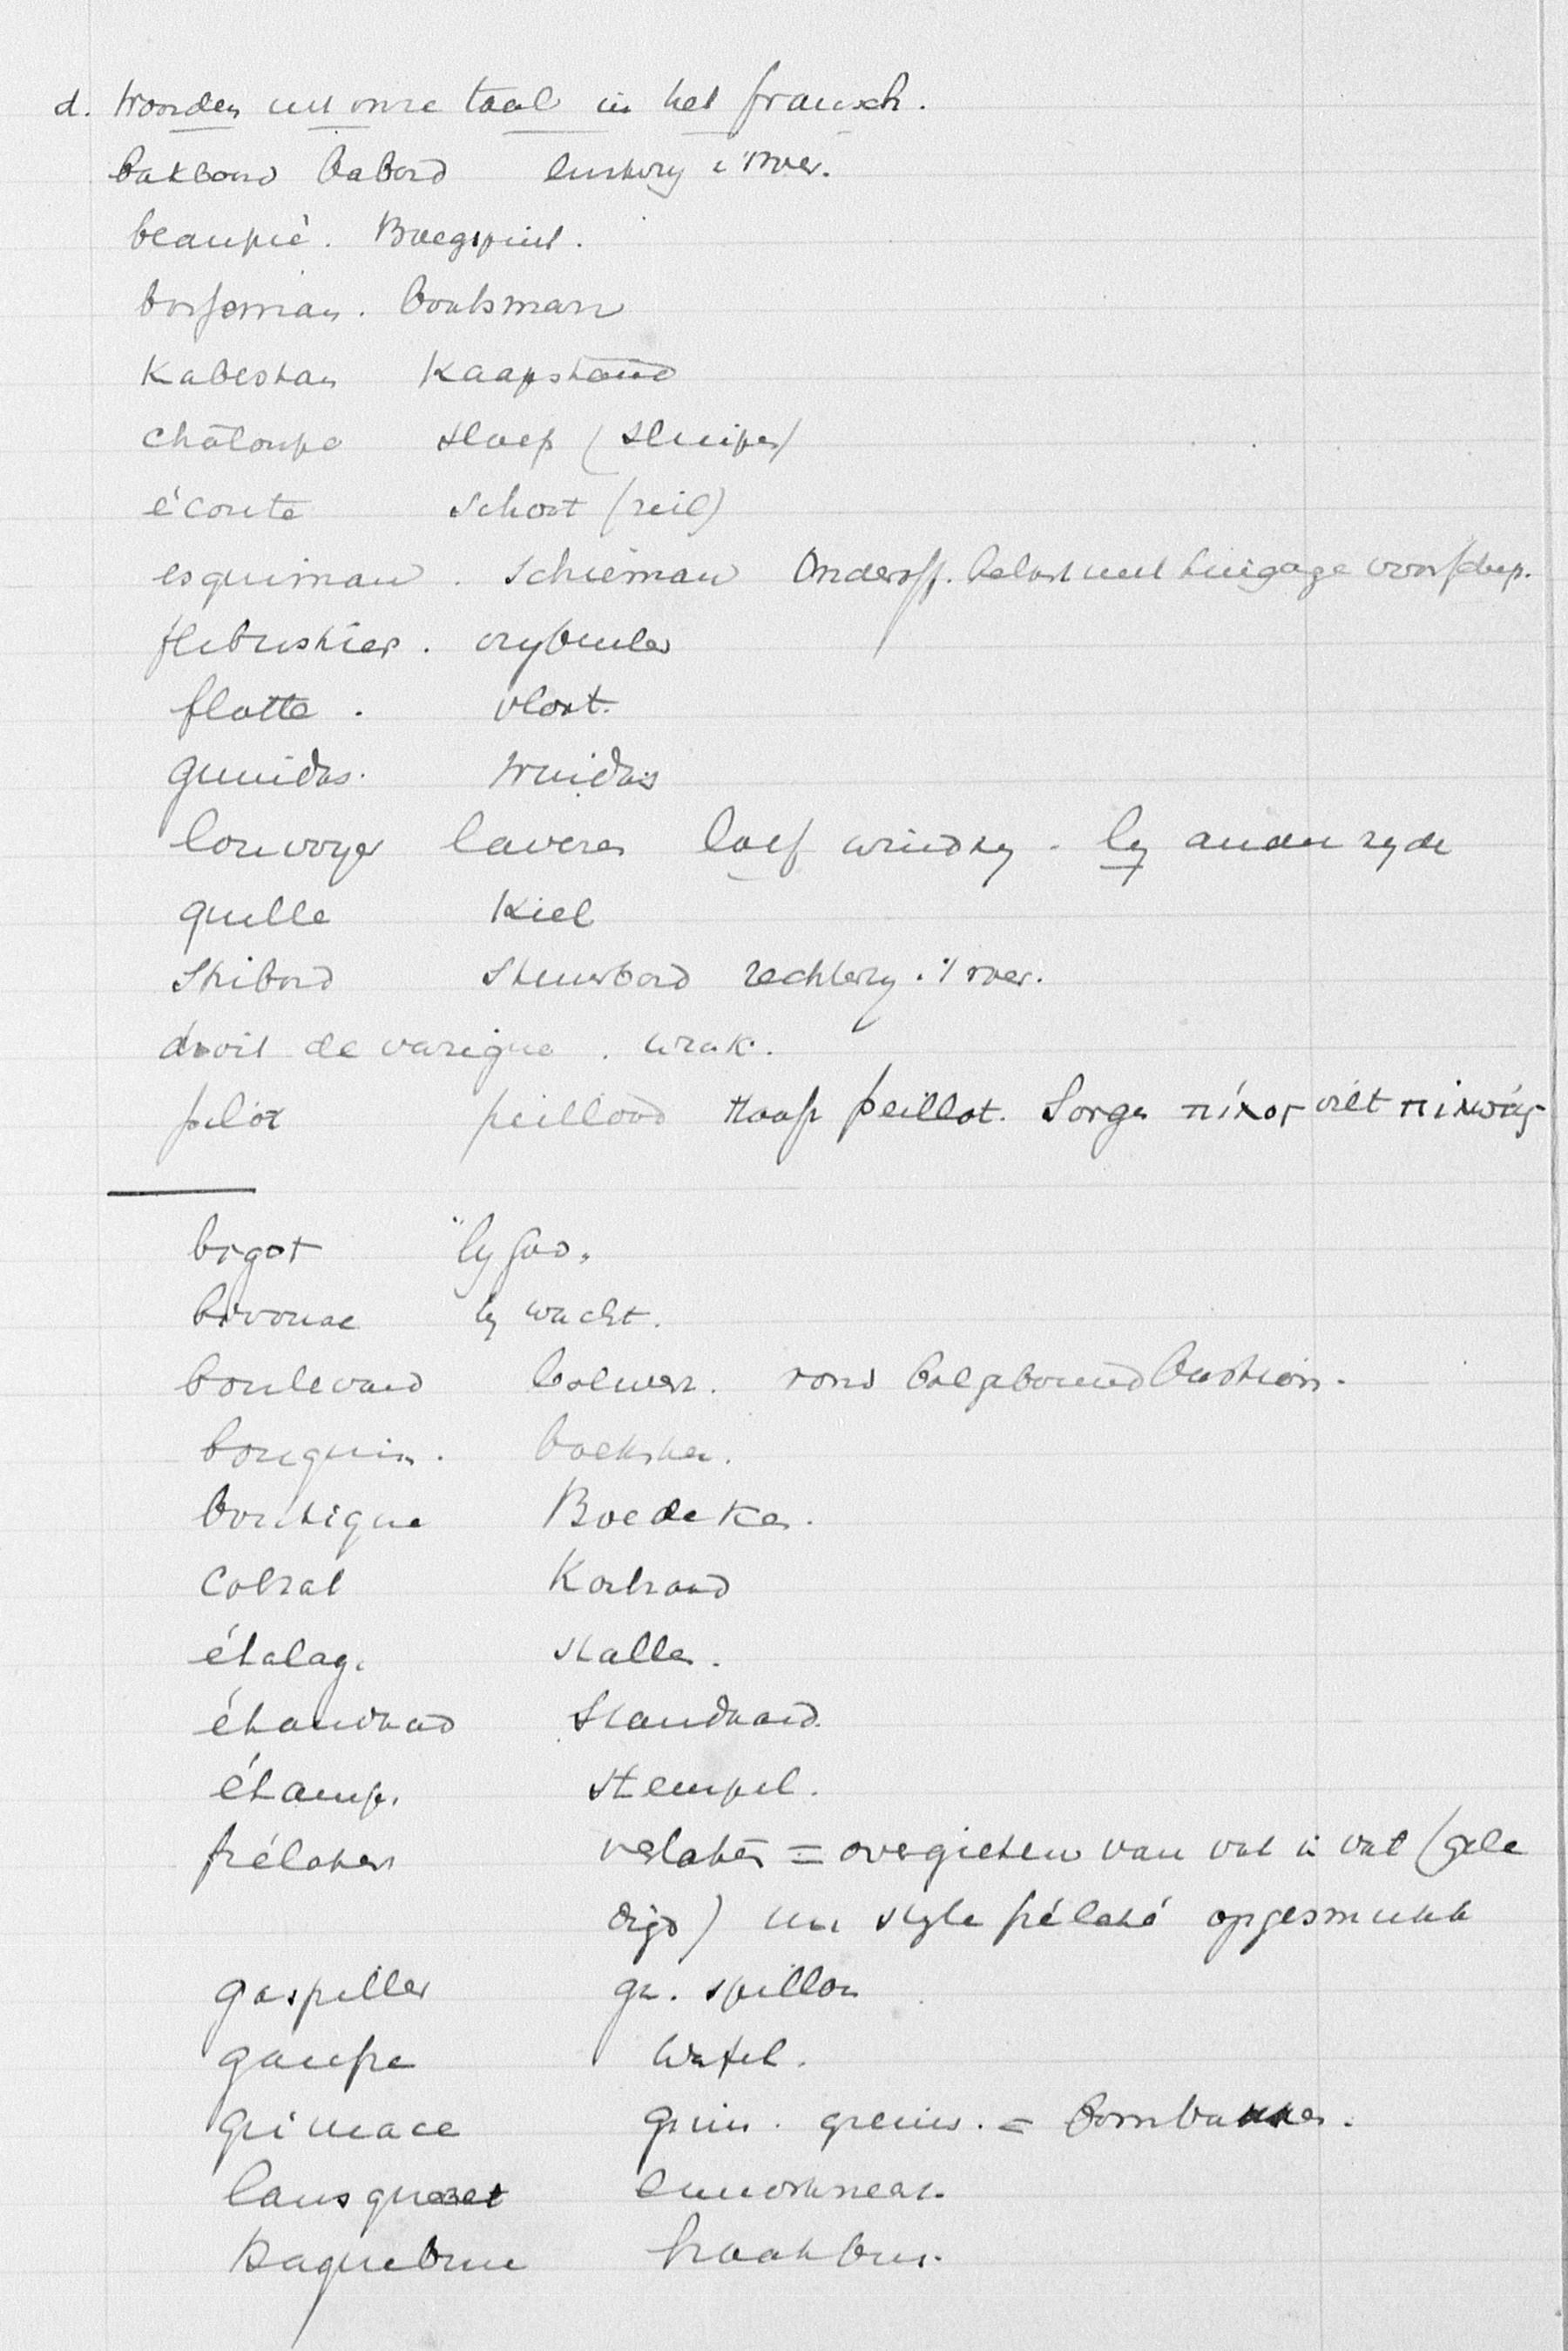 d. Woorden uit onze taal in het fransch.
bakboord babord linkerzy v. 't roer.
beaupré. Boegspriet.
bosseman. bootsman
Kabestan Kaapstand
châloupe sloep (sluipen)
écoute schoot (zeil)
esquiman. Schieman Onderoff. belast met tuigage voorschip.
flibustier. vrybuiter
flotte. vloot.
guindas. windas
louvoyer laveren loef windzy - ly andere zyde
quille Kiel
Stribord Stuurboord rechterzy v. 't roer.
droit de varigue. wrak.
pilote peillood Haaft peillot. Sorgen
bigot "by God"
bivouac by wacht.
boulevard bolwerk. rond bastion.
bouquin. boeksken.
boutique Boedeken.
colzat Koolzaad
étalag. stallen.
étandard Standaard.
étamp. stempel.
frélater verlaten = overgieten van vat in vat (gele
digd) un style frélaté opgesmukt
gaspiller ge. spillen
gaufre wafel.
grimace grim. greins. = bakkes.
lansquenet
haquebuse haakbus.